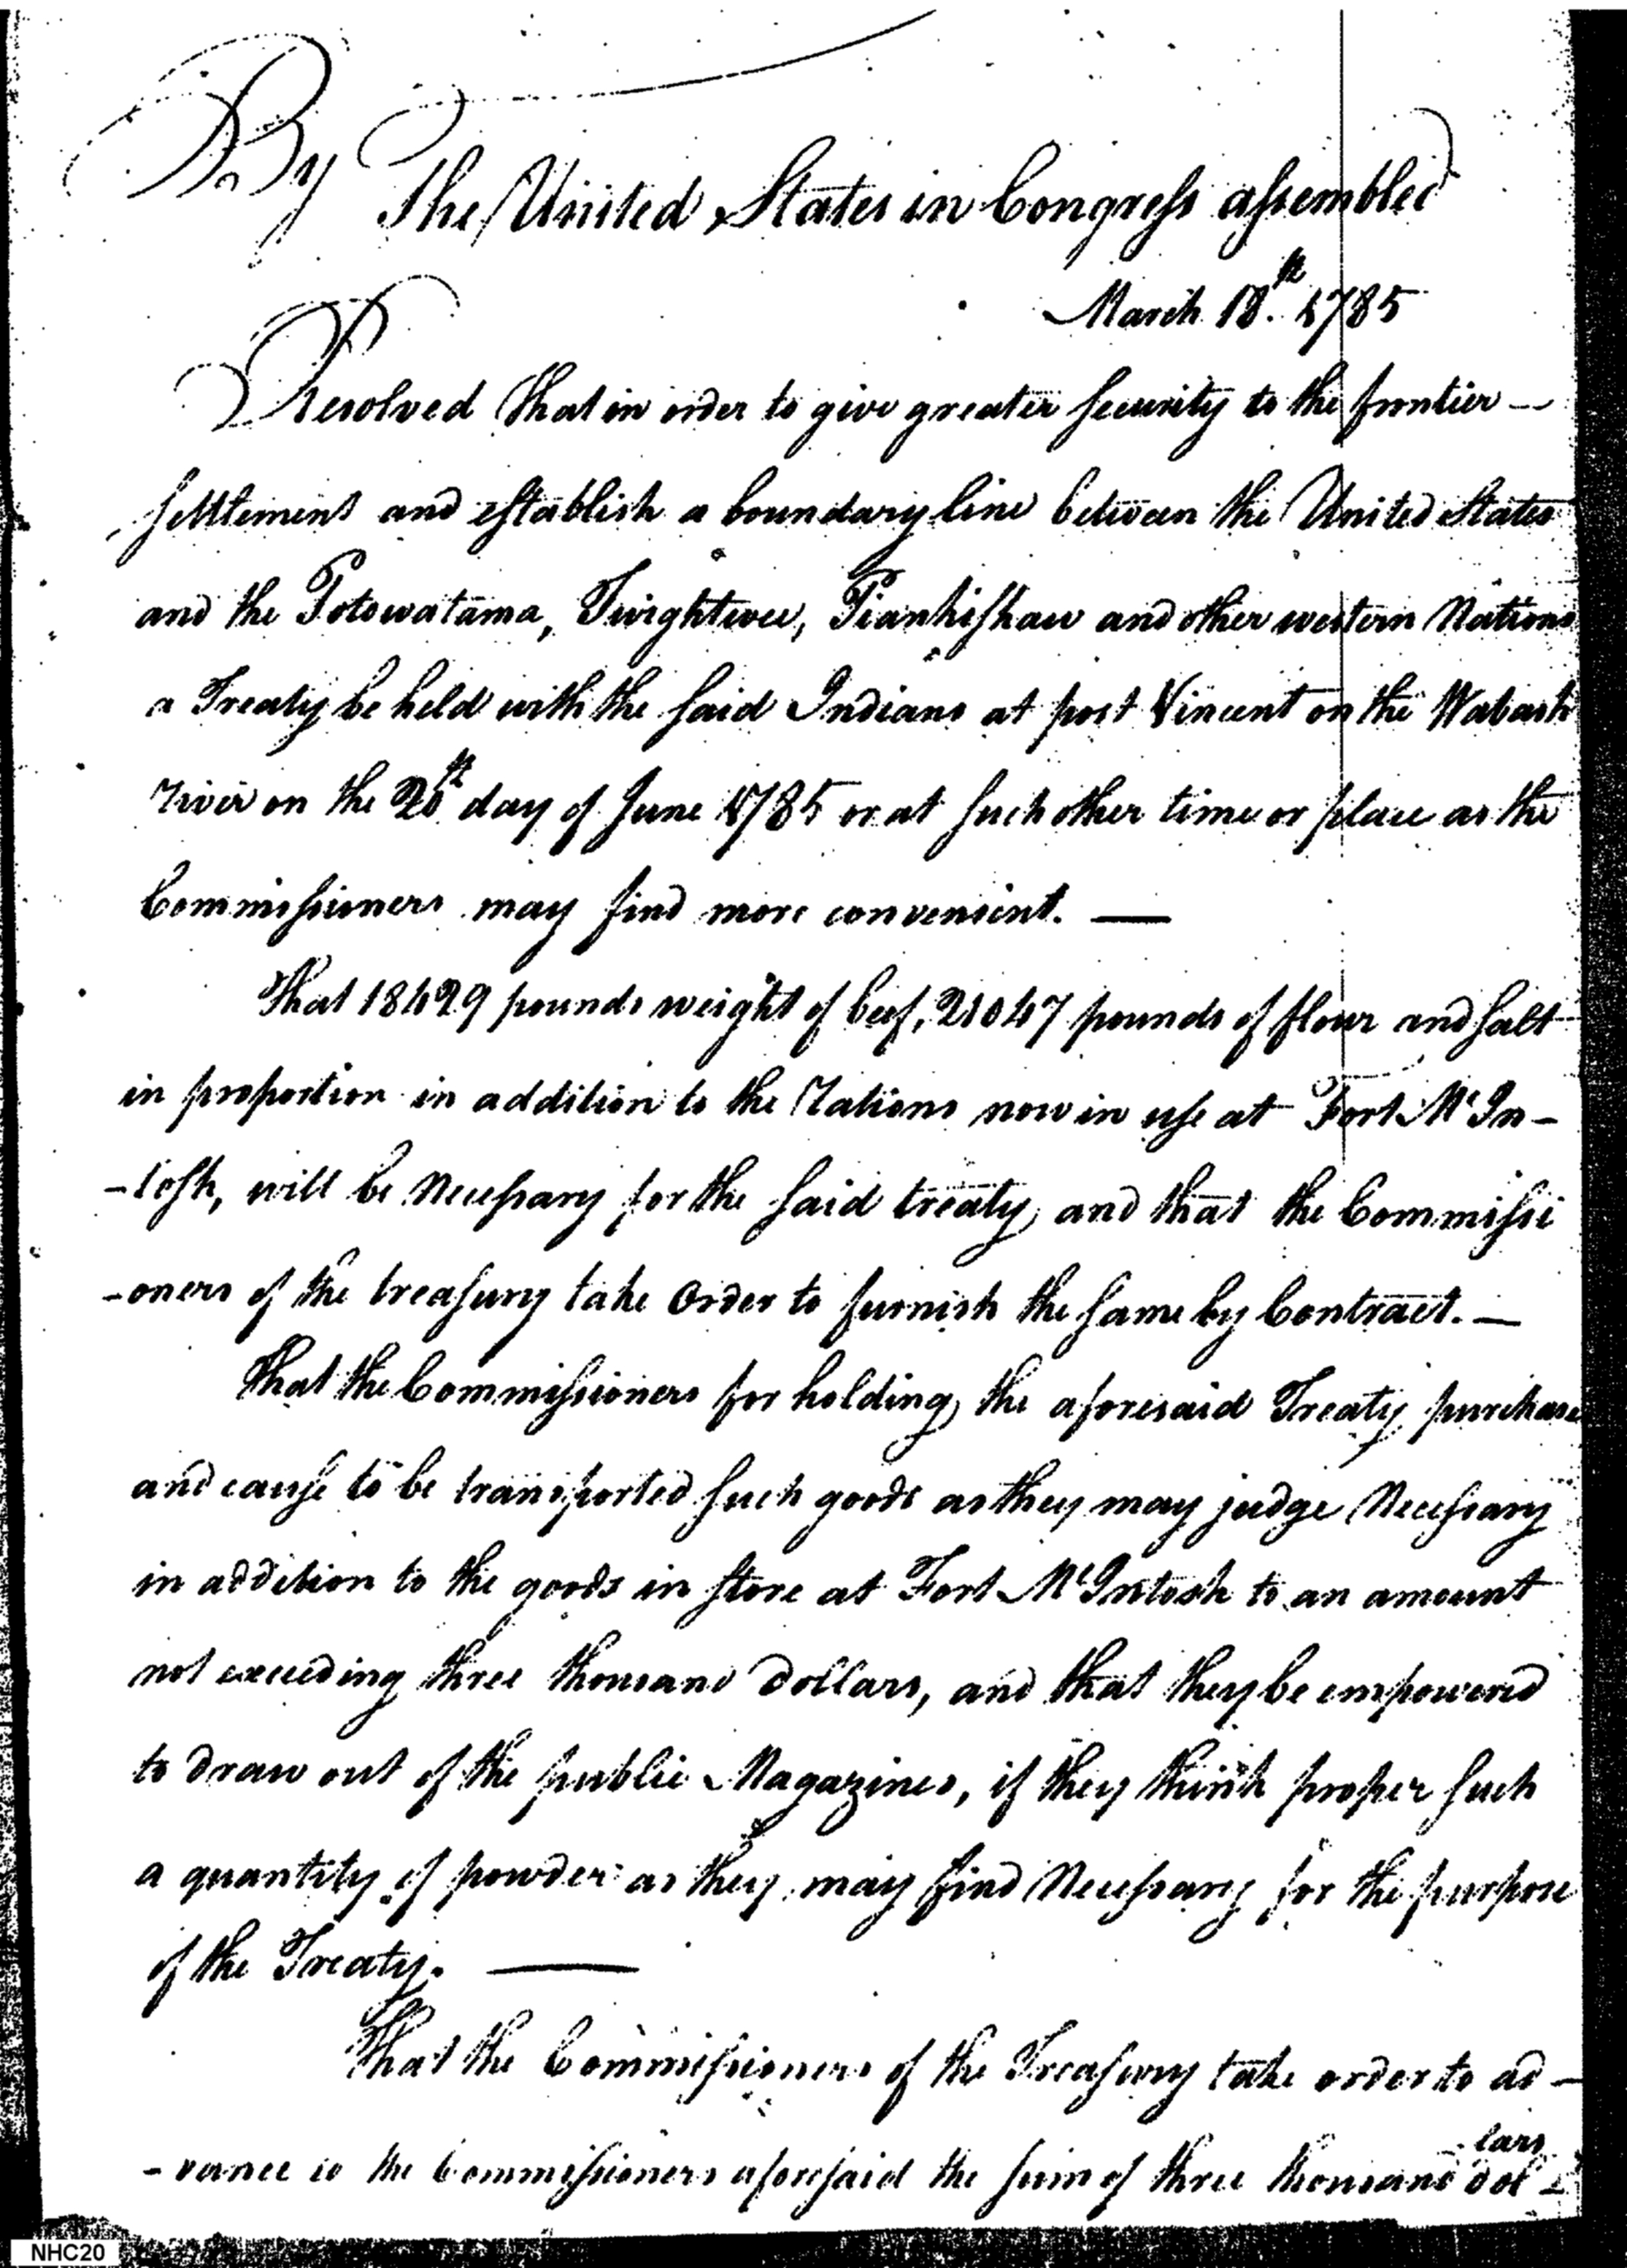 By
The United States in Congress assembled
March 18th. 1785
Resolved That in order to give greater security to the frontier —
settlements and establish a boundary line between the United States
and the Potowatama, Twightwee, Piankishaw and other western Nations
a Treaty be held with the said Indians at post Vincent on the Wabash
river on the 20th day of June 1785 or at such other time or place as the
Commissioners may find more convenient. —
That 18429 pounds weight of beef, 21047 pounds of flour and salt
in proportion in addition to the Rations now in use at Fort McIn-
-tosh, will be Necessary for the said treaty, and that the Commissi
-oners of the treasury take Order to furnish the same by Contract. —
That the Commissioners for holding the aforesaid Treaty purchase
and cause to be transported such goods as they may judge Necessary
in addition to the goods in store at Fort McIntosh to an amount
not exceeding three thousand Dollars, and that they be empowered
to draw out of the public Magazines, if they think proper such
a quantity of powder as they may find Necessary for the purpose
of the Treaty. —
That the Commissioners of the Treasury take order to ad-
-vance to the Commissioners aforesaid the sum of three thousand dol-
lars
NHC20